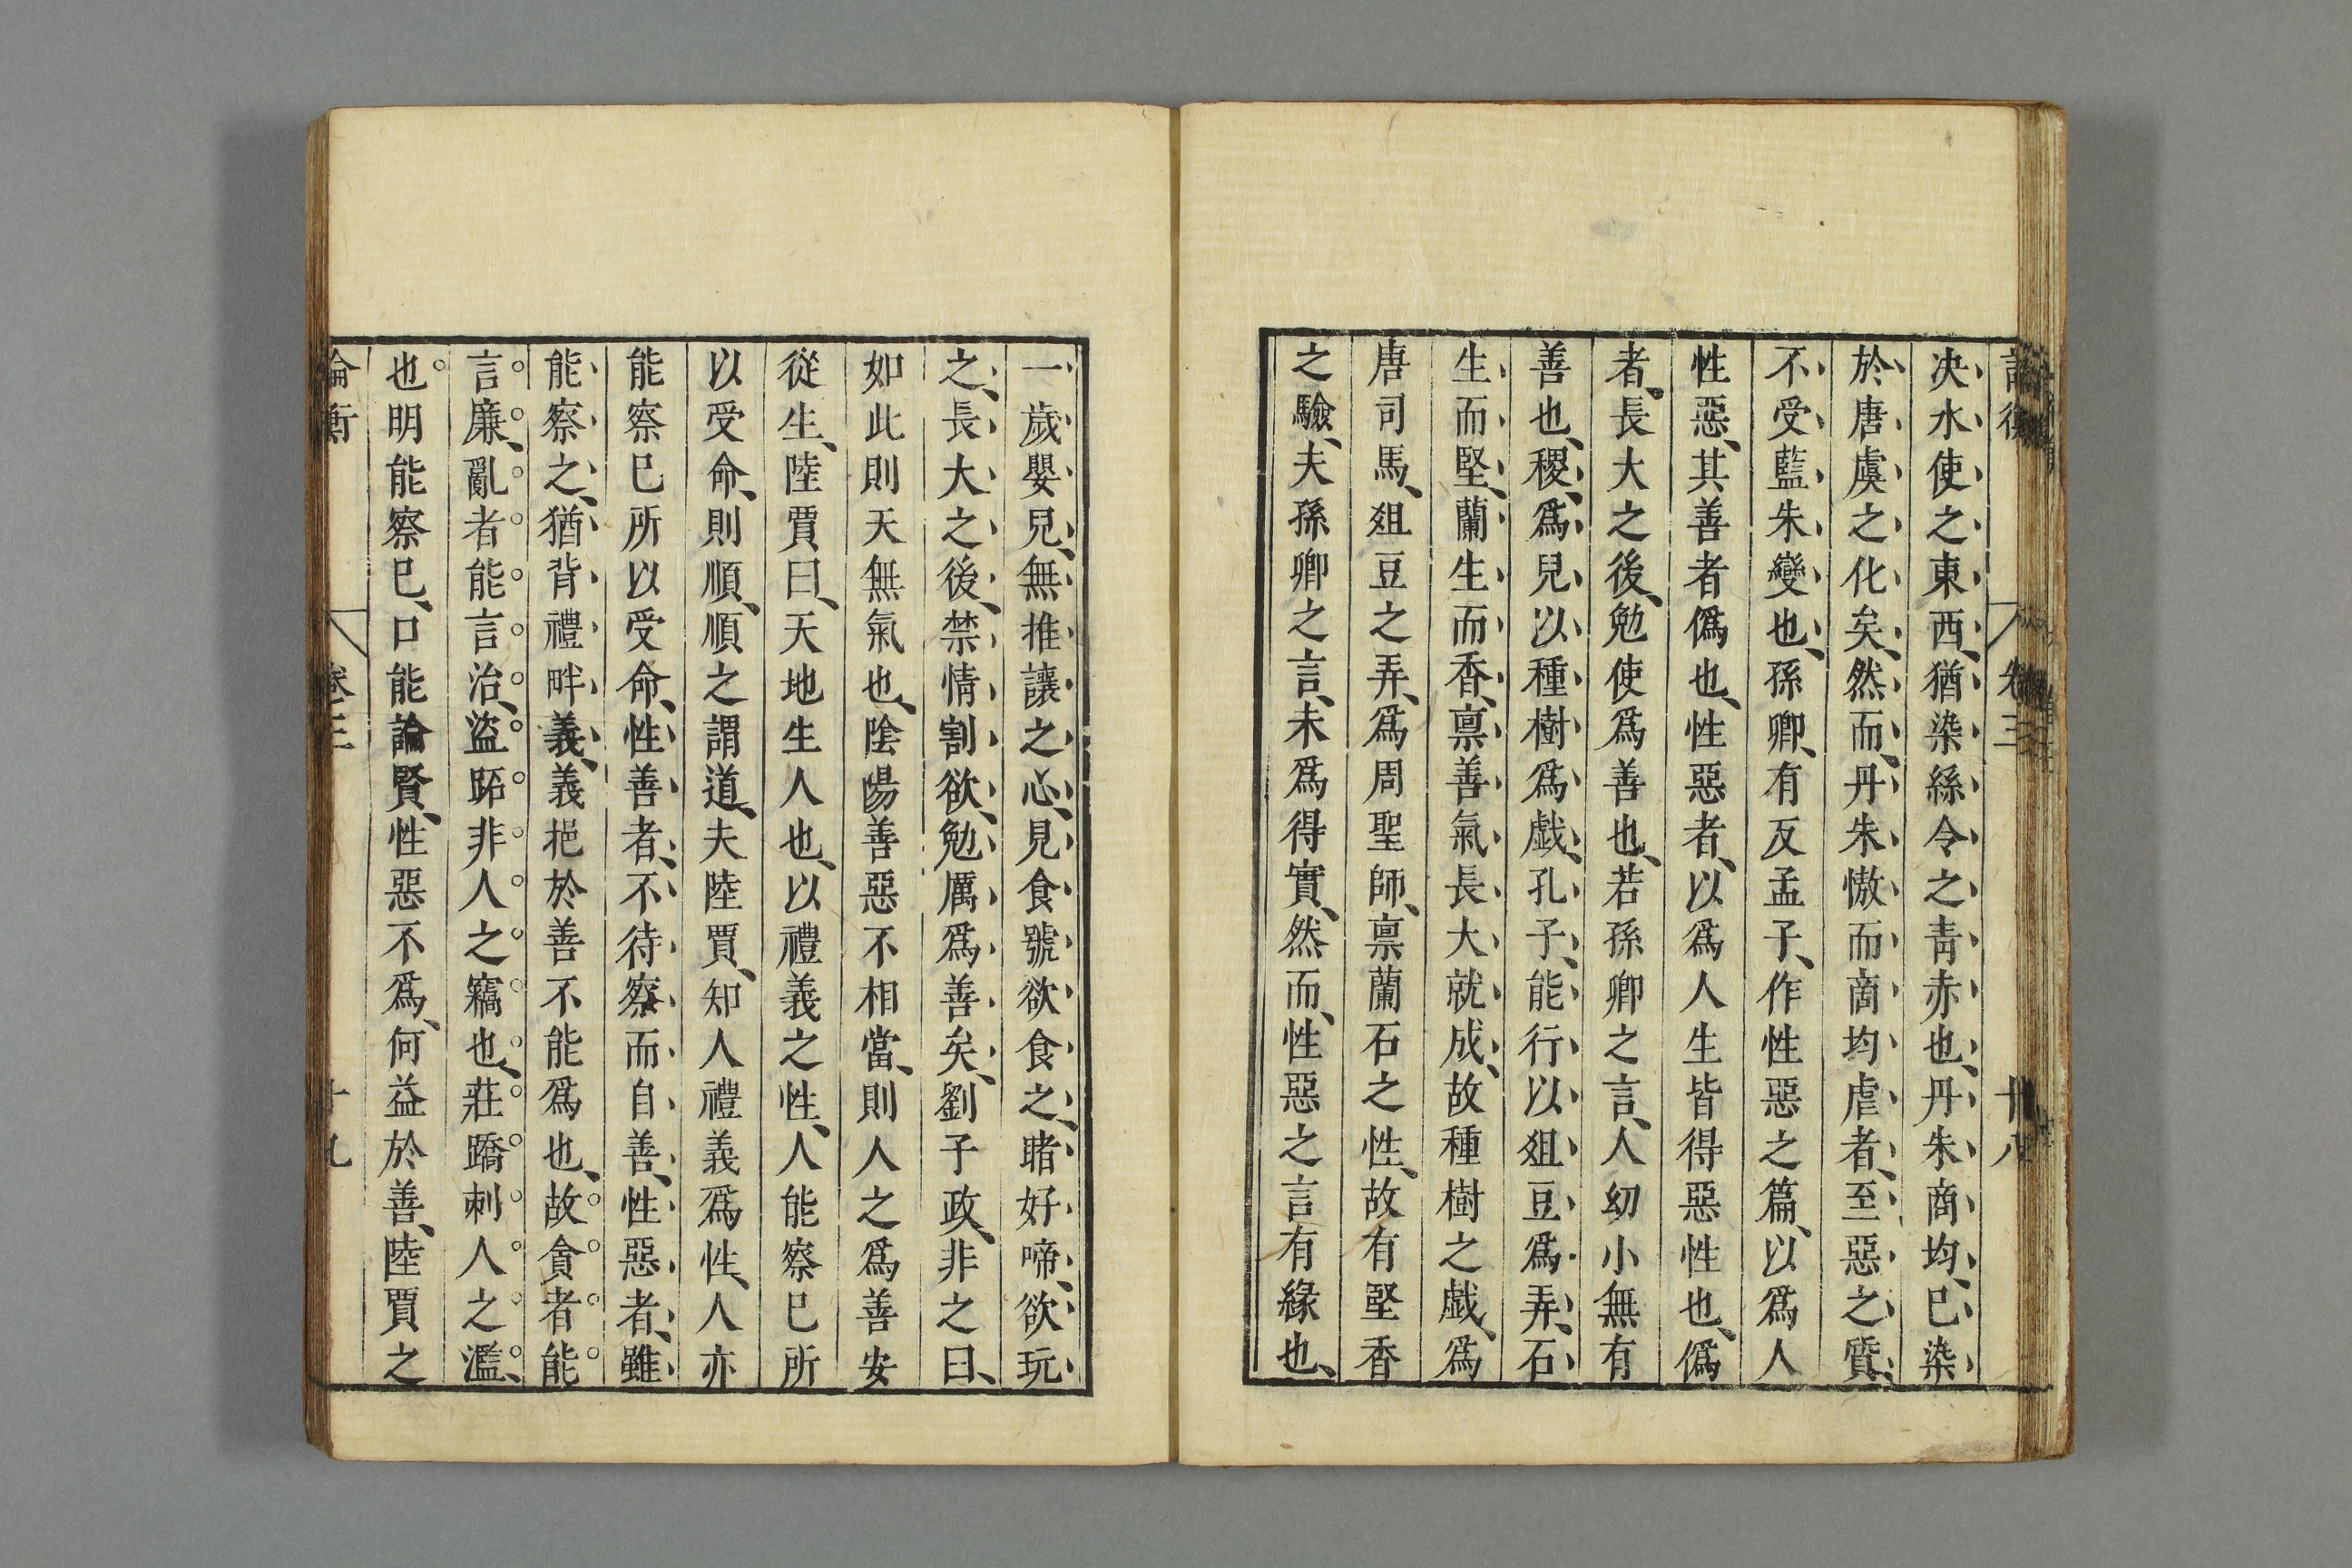 決水使之東西、猶染絲令之青赤也、丹朱商均、已染
於唐虞之化矣、然而、丹朱慠而商均虐者、至惡之質、
不受藍朱變也、孫卿、有反孟子、作性惡之篇、以爲人
性惡、其善者僞也、性惡者、以爲人生皆得惡性也、僞
者、長大之後、勉使爲善也、若孫卿之言、人幼小無有
善也、稷、爲兒以種樹爲戲、孔子、能行以俎豆爲弄、石
生而堅、蘭生而香、稟善氣長大就成、故種樹之戲、爲
唐司馬、俎豆之弄、爲周聖師、稟蘭石之性、故有堅香
之驗、夫孫卿之言、未爲得實、然而、性惡之言有緣也、
卷三
一歲嬰兒、無推讓之心、見食號欲食之、睹好啼、欲玩
之、長大之後、禁情割欲、勉厲爲善矣、劉子政、非之曰、
如此則天無氣也、陰陽善惡不相當、則人之爲善安
從生、陸賈曰、天地生人也、以禮義之性、人能察已所
以受命、則順、順之謂道、夫陸賈、知人禮義爲性、人亦
能察已所以受命、性善者、不待察而自善、性惡者、雖
能察之、猶背禮畔義、義挹於善不能爲也、故貪者能
言廉、亂者能言治、盜跖非人之竊也、莊蹻刺人之濫、
也明能察已、口能論賢、性惡不爲、何益於善、陸賈之
論衡 卷三 十九